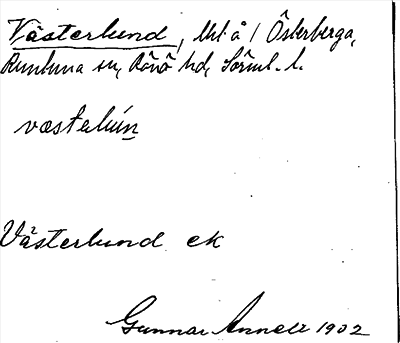 Västerlund, lht å / Österberga,
Runtuna sn, Rönö hd, Sörml. l.
væstəlún
Västerlund ek
Gunnar Annell 1902